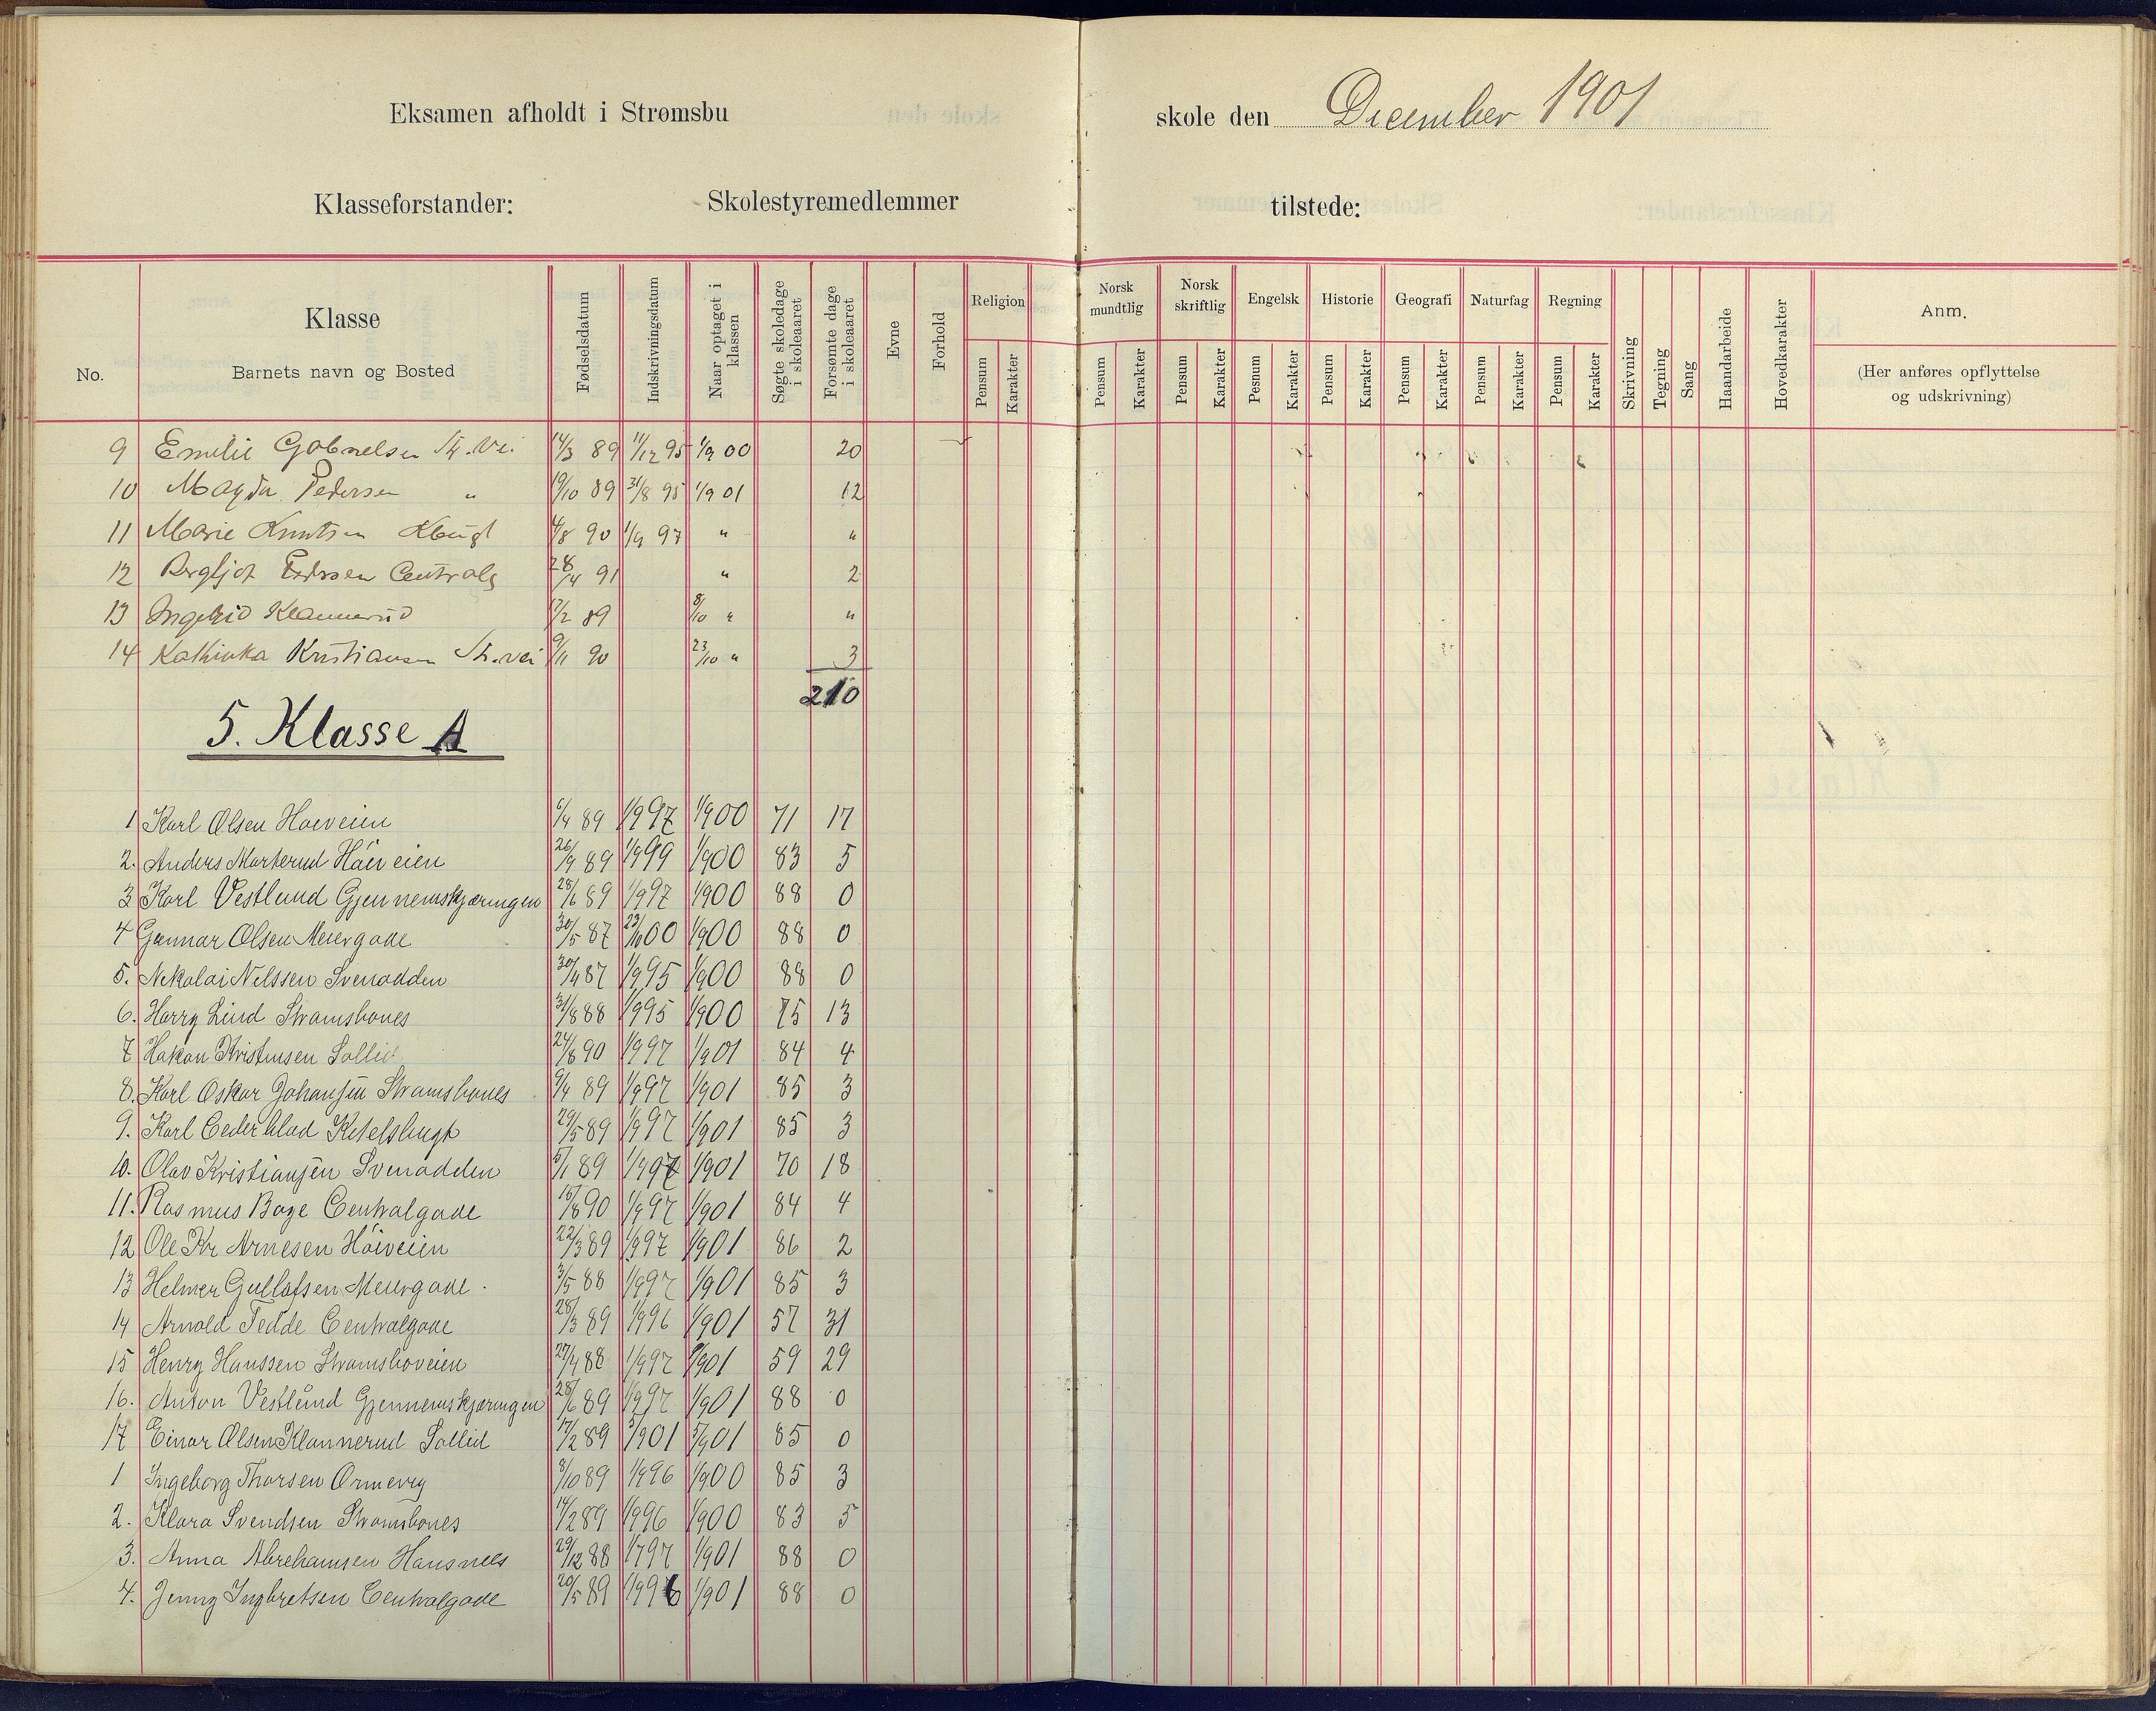 Eksamen afholdt i Strømsbu skole den December 1901
Klasseforstander: Skolestyremedlemmer tilstede:
No. Klasse Barnets navn og Bosted Fødselsdatum Indskrivningsdatum Naar optaget i klassen Søgte skoledage i skoleaaret Forsømte dage i skoleaaret Evne Forhold Religion Pensum Karakter Norsk mundtlig Pensum Karakter Norsk skriftlig Pensum Karakter Engelsk Pesnum Karakter Historie Pensum Karakter Geografi Pensum Karakter Naturfag Pensum Karakter Regning Pensum Karakter Skrivning Tegning Sang Haandarbeide Hovedkarakter Anm. (Her anføres opflyttelse og udskrivning)
9 Emilie Gabrielsen St. Vei. 14/3 89 11/12 95 1/9 00 20
10 Magda Pedersen " 19/10 89 31/8 95 1/9 01 12
11 Marie Knutsen Kbugt 4/8 90 1/9 97 " "
12 Bergljot Pedersen Centralg 28/4 91 " 2
13 Ingebid Klannerud 17/2 89 8/10 " "
14 Kathinka Kristiansen St. vei 9/11 90 23/10 " 3
210
5. Klasse A
1 Karl Olsen Høiveien 6/4 89 1/9 97 1/9 00 71 17
2. Anders Markerud Høiveien 26/9 89 1/9 99 1/9 00 83 5
3 Karl Vestlund Gjennemskjæringen 28/6 89 1/9 97 1/9 00 88 0
4 Gunnar Olsen Meiergade 30/5 87 23/10 00 1/9 00 88 0
5. Nikolai Nilssen Svenodden 30/4 87 1/9 95 1/9 00 88 0
6. Harry Lind Strømsbones 31/8 88 1/9 95 1/9 00 75 13
7 Hakon Kristensen Sollid 24/8 90 1/9 97 1/9 01 84 4
8. Karl Oskar Johansen Strømsbones 9/4 89 1/9 97 1/9 01 85 3
9. Karl Cederblad Kitelsbugt 29/5 89 1/9 97 1/9 01 85 3
10. Olav Kristiansen Svenodden 5/1 89 1/9 97 1/9 01 70 18
11. Rasmus Boye Centralgade 15/8 90 1/9 97 1/9 01 84 4
12 Ole Kr Arnesen Høiveien 22/3 89 1/9 97 1/9 01 86 2
13 Helmer Gullafsen Meiergade. 3/5 88 1/9 97 1/9 01 85 3
14 Arnold Tedde Centralgade 28/3 89 1/9 96 1/9 01 57 31
15 Henry Hanssen Strømsboveien 27/4 88 1/9 97 1/9 01 59 29
16. Anton Vestlund Gjennemskjæringen 28/6 89 1/9 97 1/9 01 88 0
17 Einar Olsen Klannerud Sollid 17/2 89 5/9 01 5/9 01 85 0
1 Ingeborg Thorsen Ormevig 8/10 89 1/9 96 1/9 00 85 3
2. Klara Svendsen Strømsbones 14/2 89 1/9 96 1/9 00 83 5
3. Anna Abrehamsen Hansnæs 29/12 88 1/7 97 1/9 01 88 0
4. Jenny Ingbretsen Centralgade 20/5 89 1/9 96 1/9 01 88 0